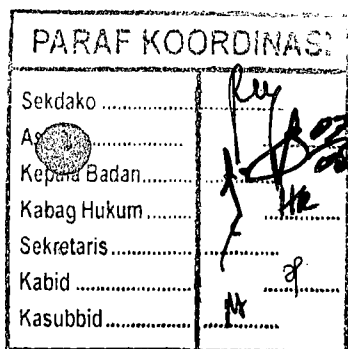 PARAF KOORDINASI
Sekdako ...............
Kepala Badan.........
Kabag Hukum .......
Sekretaris..............
Kabid ....................
Kasubbid................